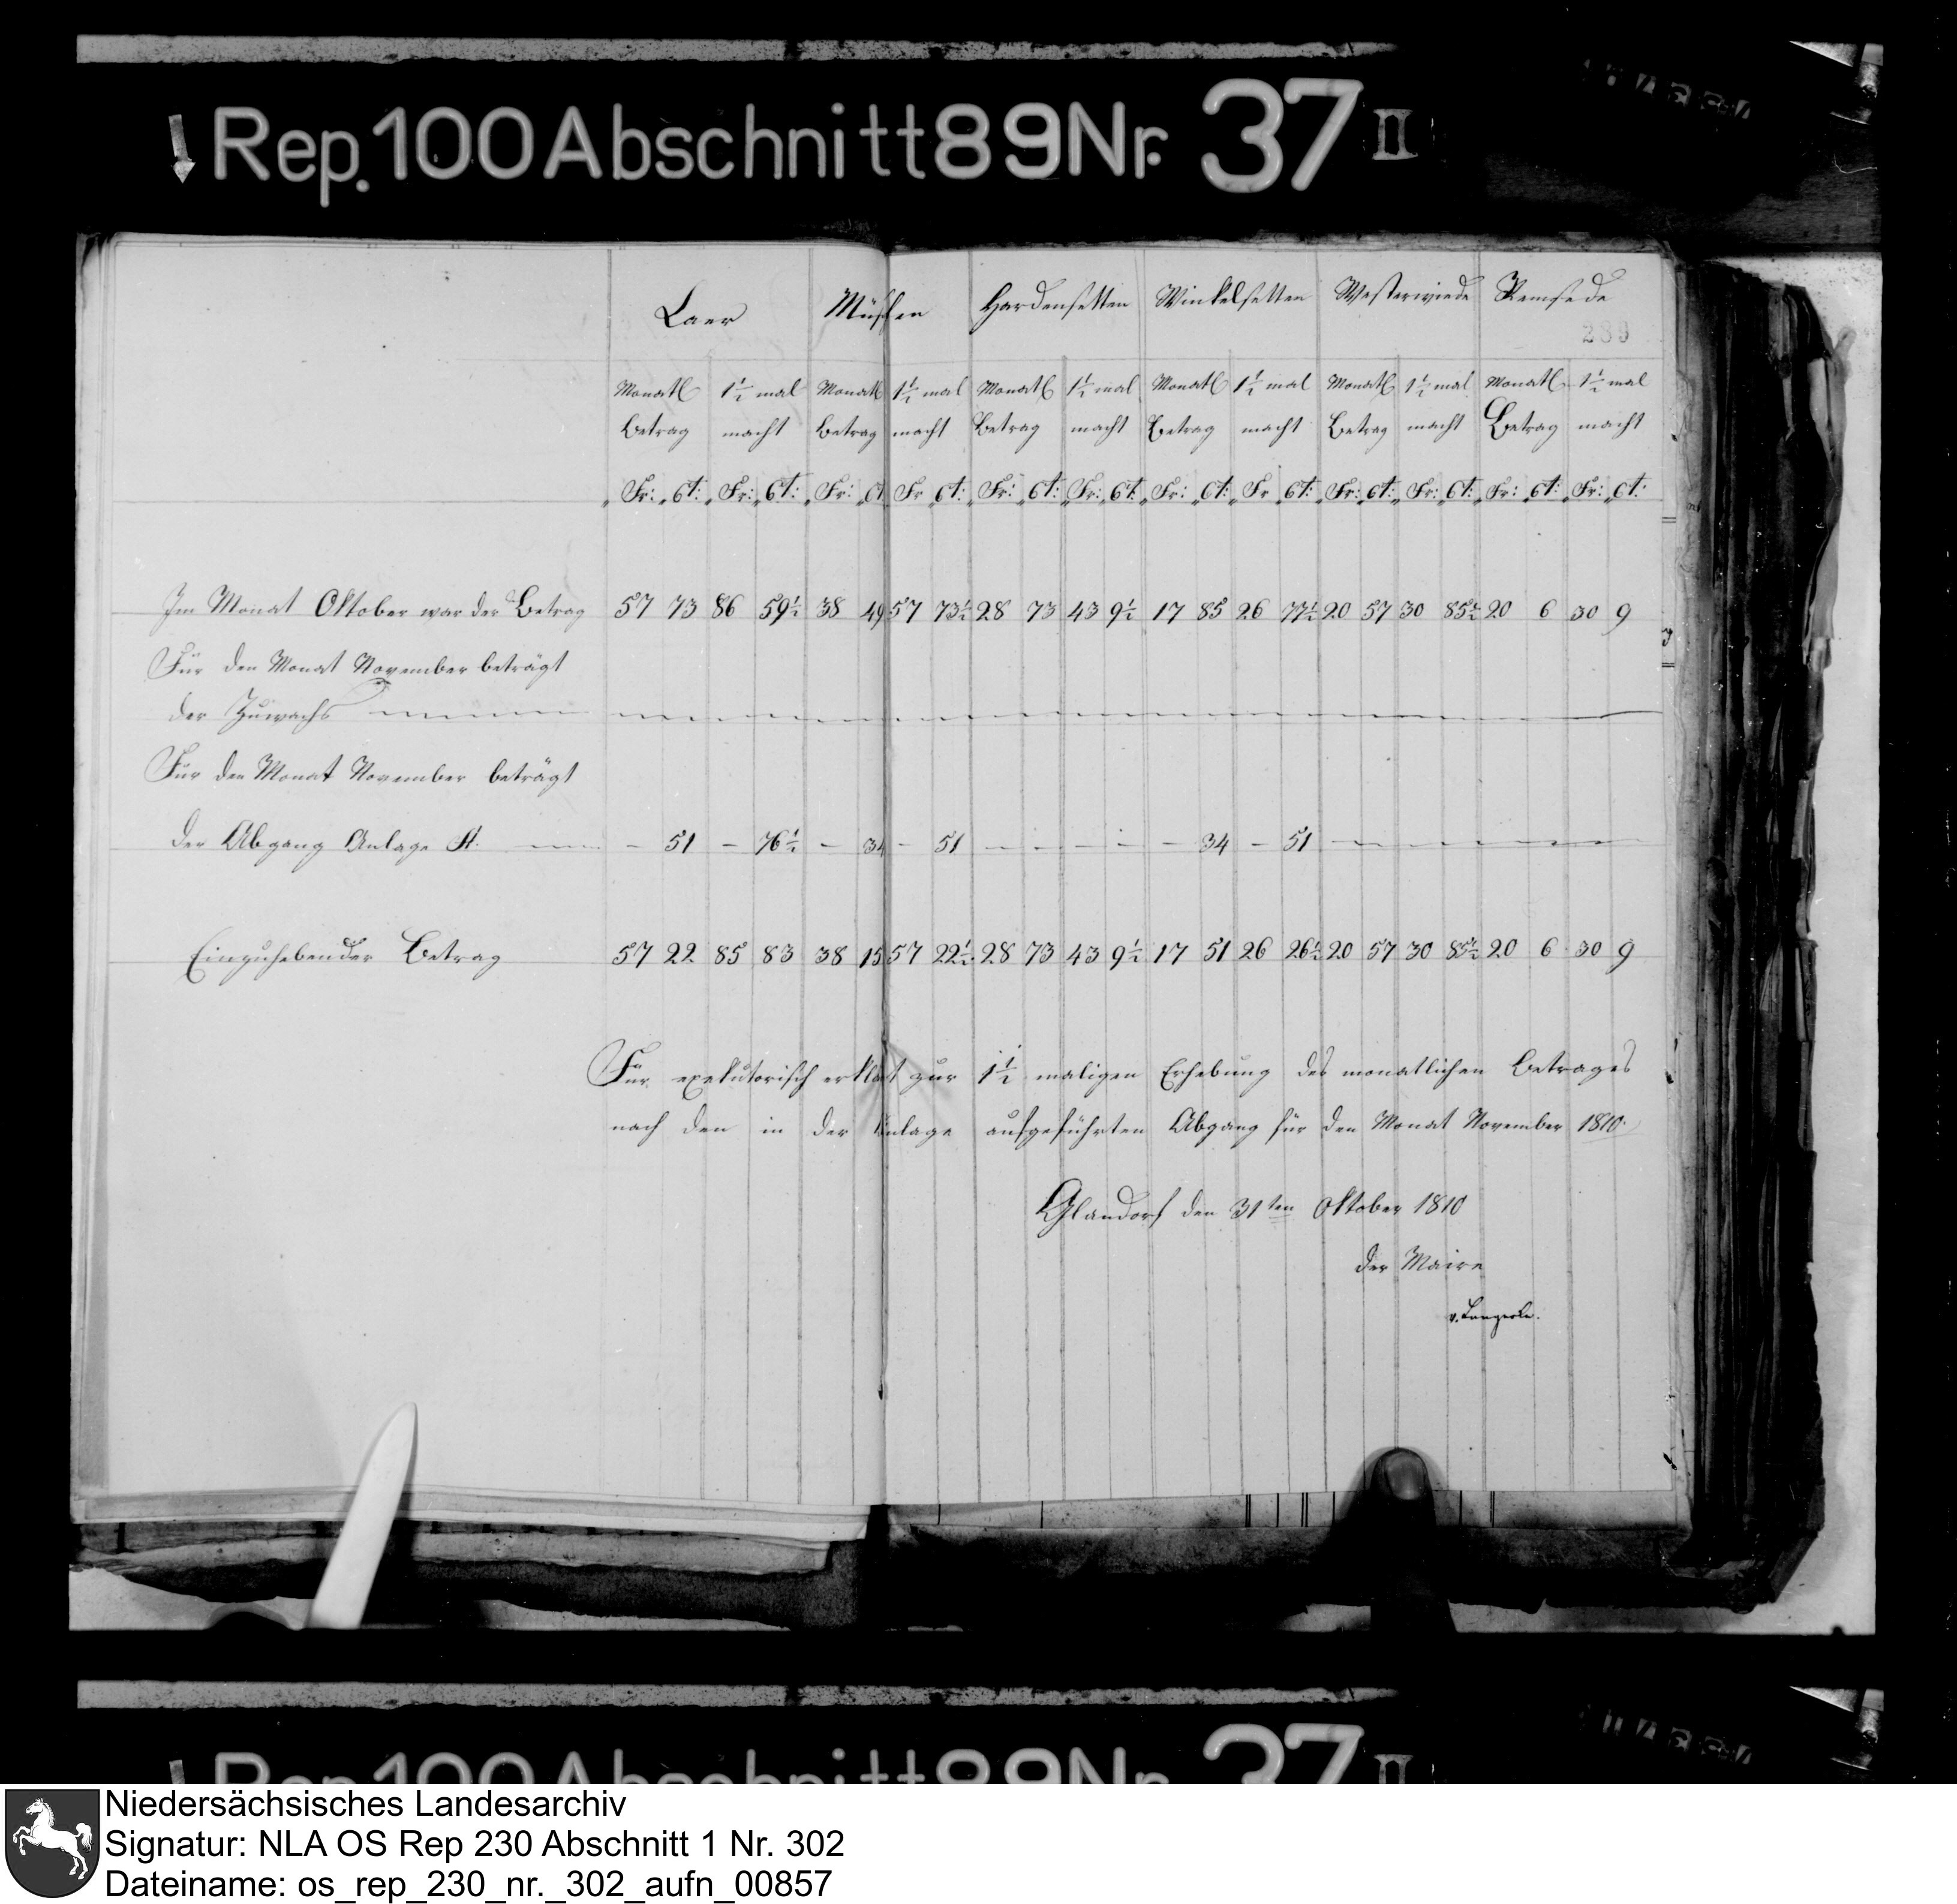 Rep. 100 Abschnitt 89 Nr. 37 II
Laer Müschen Hardensetten Winkelsetten Westerwiede Remsede
289
Monatl 1½ mal Monatl 1½ mal Monatl 1½ mal Monatl 1½ mal Monatl 1½ mal Monatl 1½ mal
Betrag macht Betrag macht Betrag macht Betrag macht Betrag macht Betrag macht
Fr: Ct: Fr: Ct: Fr: Ct Fr Ct: Fr: Ct: Fr: Ct: Fr: Ct: Fr Ct: Fr: Ct: Fr: Ct: Fr: Ct: Fr: Ct.
Im Monat Oktober war der Betrag 57 73 86 59½ 38 49 57 73½ 28 73 43 9½ 17 85 26 77½ 20 57 30 85½ 20 6 30 9
Für den Monat November beträgt
der Zuwachs — — — — — —
Für den Monat November beträgt
der Abgang Anlage A. — — 51 — 76½ — 34 — 51 — — — — — 34 — 51 — — — — — — — —
Einzuhebender Betrag 57 22 85 83 38 15 57 22½ 28 73 43 9½ 17 51 26 26½ 20 57 30 85½ 20 6 30 9
Für exekutorisch erklärt zur 1½ maligen Erhebung des monatlichen Betrages
nach den in der Anlage aufgeführten Abgang für den Monat November 1810.
Glandorf den 31ten Oktober 1810
der Maire
Rep. 100 Abschnitt 89 Nr. 37 II
Niedersächsisches Landesarchiv
Signatur: NLA OS Rep 230 Abschnitt 1 Nr. 302
Dateiname: os_rep_230_nr._302_aufn_00857